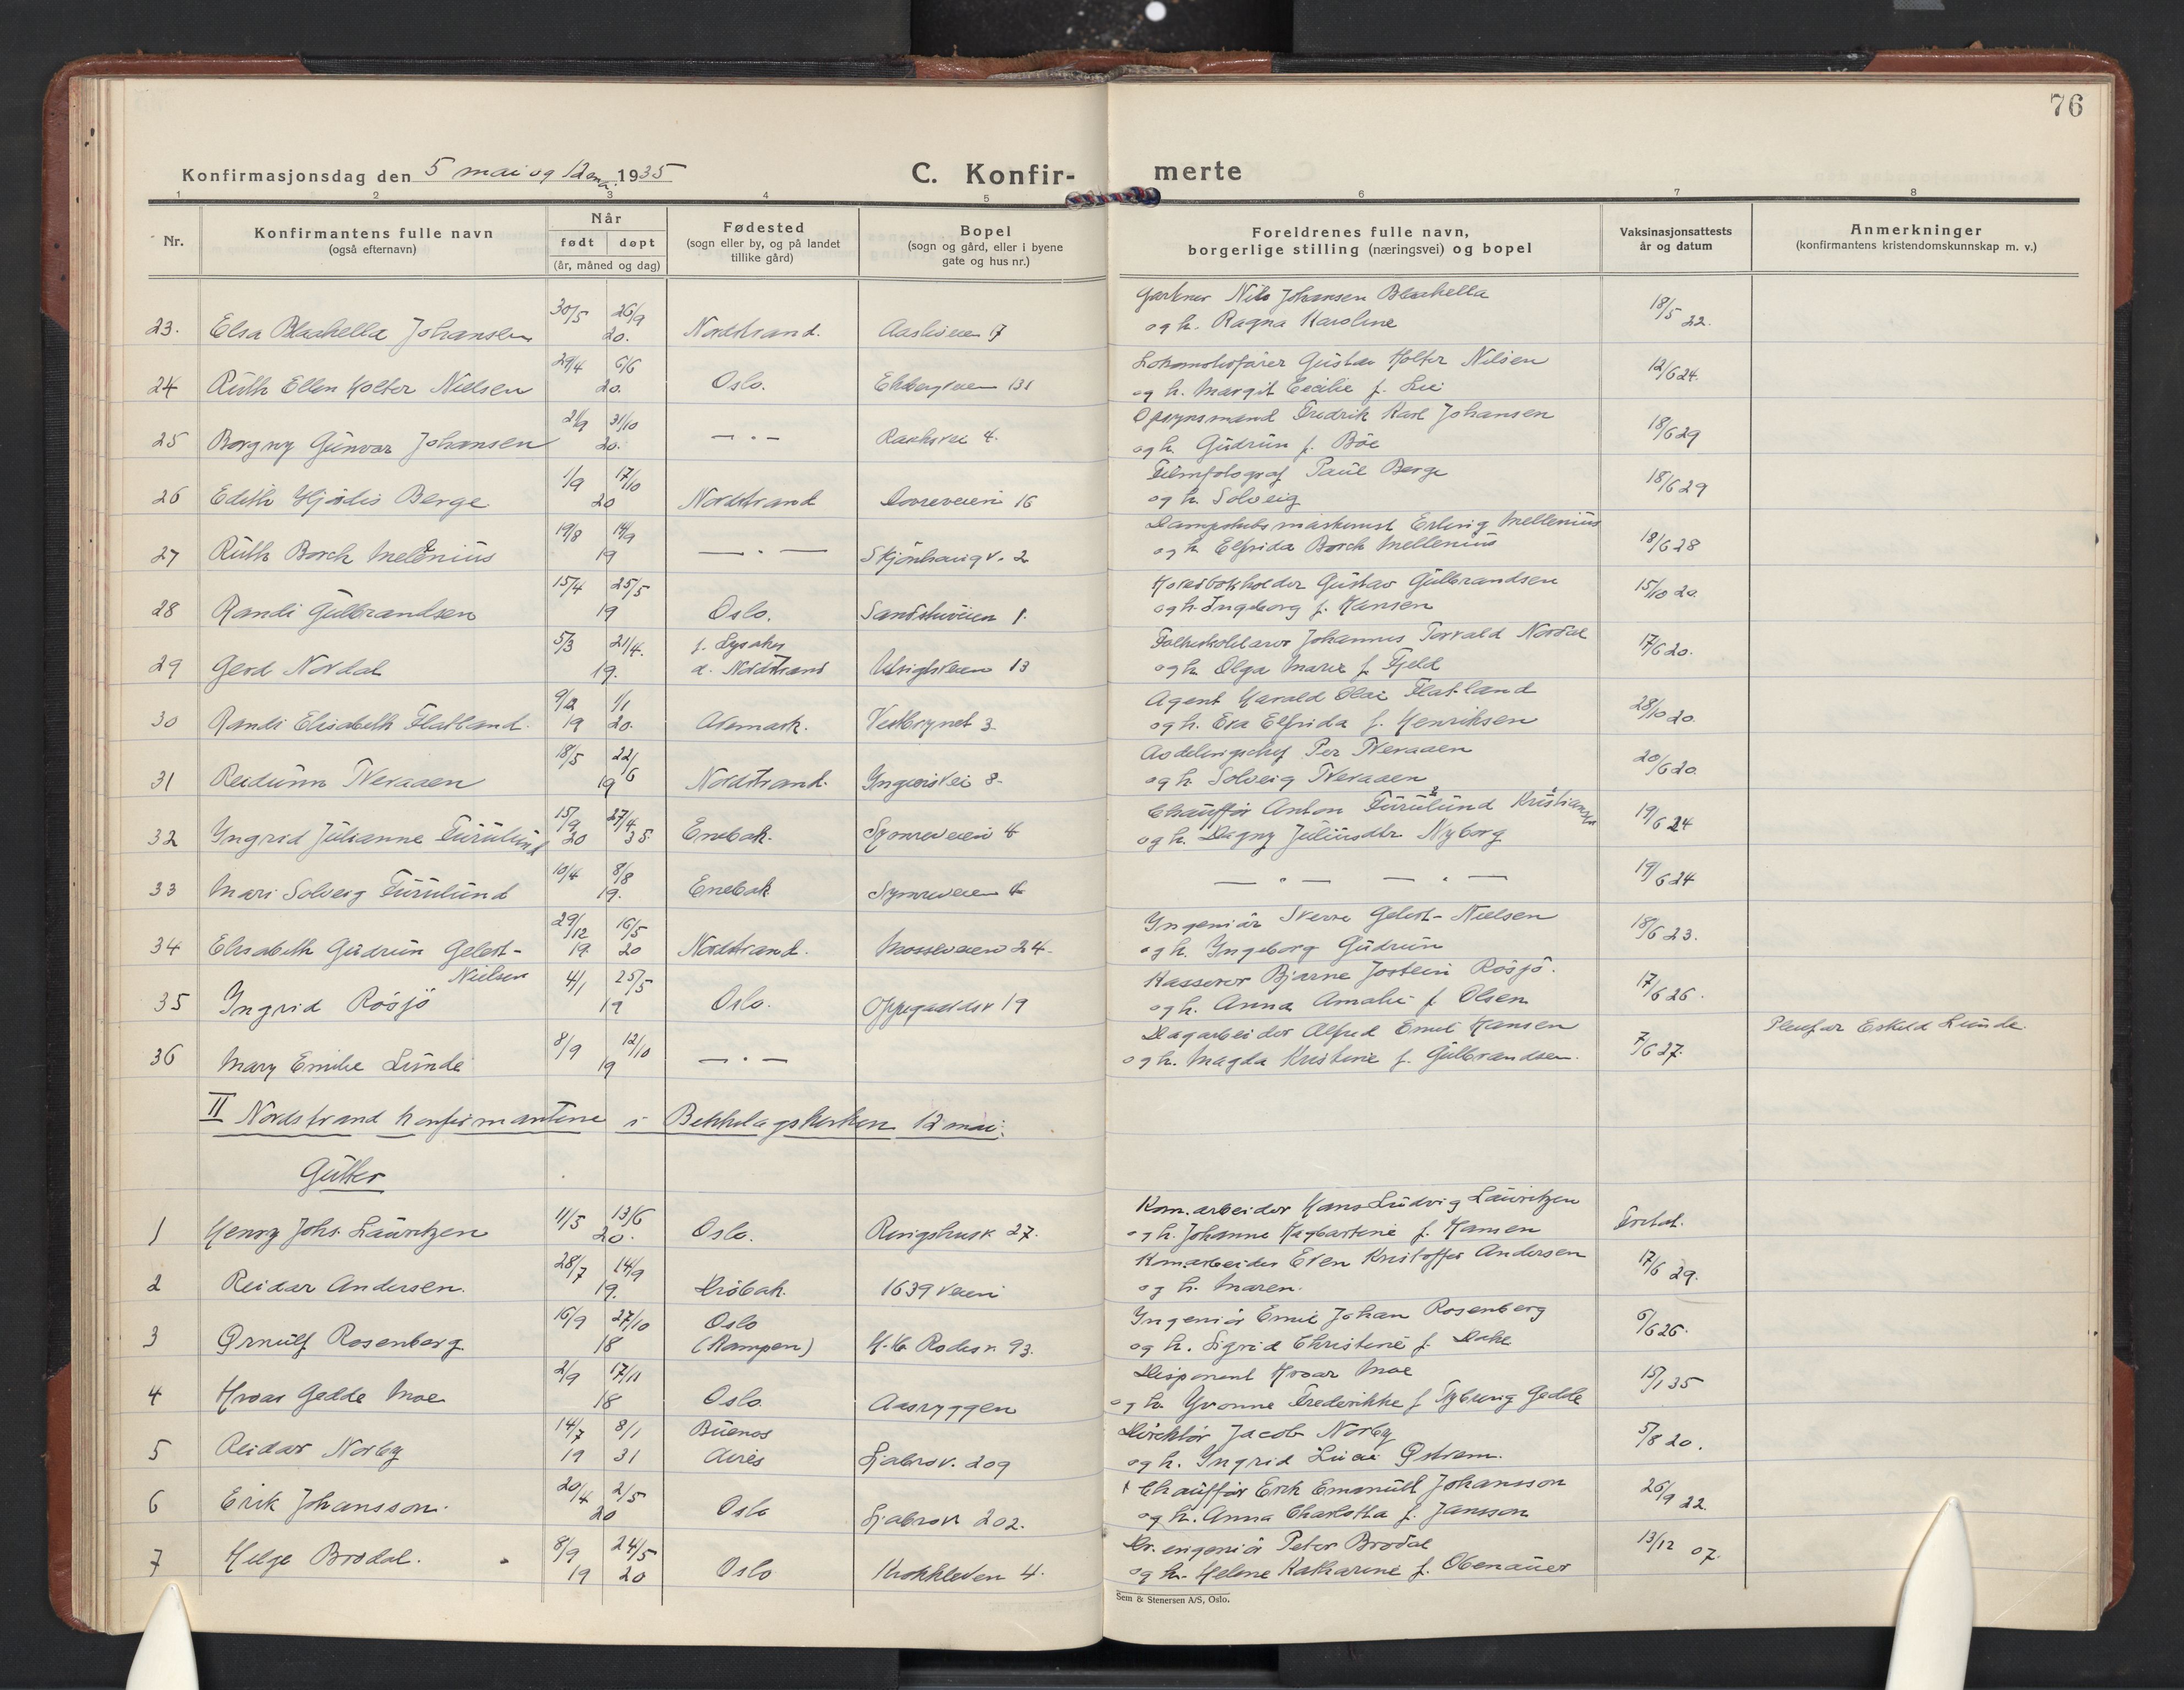 76
Konfirmasjonsdag den 5 mai og 12 mai 1935
C. Konfir-
merte
1 2 3 4 5 6 7 8
Nr.
Konfirmantens fulle navn
(også efternavn)
Når
født døpt
(år, måned og dag)
Fødested
(sogn eller by, og på landet
tillike gård)
Bopel
(sogn og gård, eller i byene
gate og hus nr.)
Foreldrenes fulle navn,
borgerlige stilling (næringsvei) og bopel
Vaksinasjonsattests
år og datum
Anmerkninger
(konfirmantens kristendomskunnskap m. v.)
23. Elsa Blakkella Johansen 30/5 26/9 20. Nordstrand. 7 Gartner Nils Johansen Blakkella 18/5 22.
og h. Ragna Karoline
24 Ruth Ellen Holter Nielsen 29/4 6/6 20. Oslo. Ekebergveien 131 Lokomotivfører Gustav Holter Nilsen 12/6 24.
og h. Margit Cecilie f. Lie
25 Borgny Gunvor Johansen 21/9 31/10 20. — " — 4. Opsynsmand Fredrik Karl Johansen 18/6 29
og h. Gudrun f. Bøe
26 Edith Hjørdis Berge 1/9 17/10 20 Nordstrand Dovreveien 16 Filmfotograf Paul Berge 18/6 29
og h. Solveig
27 Ruth Borch Mellenius 19/8 14/9 19 — " — Skjønhaugv. 2 Dampskibsmaskinist Erling Mellenius 18/6 28
og h. Elfrida Borch Mellenius
28 Randi Gulbrandsen 15/4 25/5 19 Oslo. Sandstuveien 1. Hovedbokholder Gustav Gulbrandsen 15/10 20.
og h. Ingeborg f. Hansen
29 Gerd Nordal 5/3 21/4. 19. f. Lysaker Utsigtsveien 13 Folkeskolelærer Johannes Torvald Nordal 17/6 20.
d. Nordstrand og h. Olga Marie f. Fjeld
30 Randi Elisabeth Flatland. 9/2 19 1/1 20. Aremark. Vestbrynet 3 Agent Harald Olai Flatland 28/10 20.
og h. Eva Elfrida f. Henriksen
31 Reidunn Tveraaen 18/5 22/6 19 Nordstrand. Ingiersvei 8. Avdelingschef Per Tveraaen 20/6 20.
og h. Solveig Tveraaen
32 Ingrid Julianne Furulund 15/9 20 27/4 35 Enebak. Symreveien 4 Chauffør Anton Furulund Kristiansen 19/6 24
og h. Dagny Juliusdtr. Nyborg
33 Mari Solveig Furulund 10/4 8/8 19. Enebak Symreveien 4 — " — — " — 19/6 24
34 Elisabeth Gudrun Gelert- 29/12 19 16/5 20 Nordstrand. Mosseveien 24. Ingeniør Sverre Gelert-Nielsen 18/6 23.
Nielsen og h. Ingeborg Gudrun
35 Ingrid Rösjö 4/1 25/5 19 Oslo. Oppegaardsv 19 Kasserer Bjarne Jostein Rösjö. 17/6 26.
og h. Anna Amalie f. Olsen
36 Mary Emilie Lunde 8/9 12/10 19 — " — Dagarbeider Alfred Emil Hansen 7/6 27. Pleiefar Eskild Lunde.
og h. Magda Kristine f. Gulbrandsen.
II Nordstrand konfirmantene i Bekkelagskirken 12 mai.
Gutter
1 Henry Johs. Lauritzen 11/5 13/6 20. Oslo. Ringshusv 27. Kom.arbeider Hans Ludvig Lauritzen Fretat.
og h. Johanne Hagbartine f. Hansen
2 Reidar Andersen. 28/7 14/9 19. Drøbak. 1639 veien Kom.arbeider Even Kristoffer Andersen 17/6 29.
og h. Maren.
3 Ørnulf Rosenberg 16/9 27/10 18 Oslo (Kampen) 93. Ingeniør Emil Johan Rosenberg 6/6 26.
og h. Sigrid Christine f. Dahl
4 Hroar Gedde Moe 2/9 17/11 18 Oslo. Aasryggen Disponent Hroar Moe 15/1 35
og h. Yvonne Frederikke f. Tybring Gedde
5 Reidar Norby 14/7 19 8/1 31 Buenos Aires Ljabrov. 209 Direktør Jacob Norby 5/8 20.
og h. Ingrid Lucie Østrem.
6 Erik Johansson. 20/4 2/5 20 Oslo Ljabrov. 202. Chauffør Erik Emanuel Johansson 26/9 22.
og h. Anna Charlotta f. Jansson
7 Helge Brodal. 8/9 19 24/5 20 Oslo Krokkleven 4. Dr. ingeniør Peter Brodal 13/12 07.
og h. Helene Katharine f. Obenauer
Sem & Stenersen A/S, Oslo.